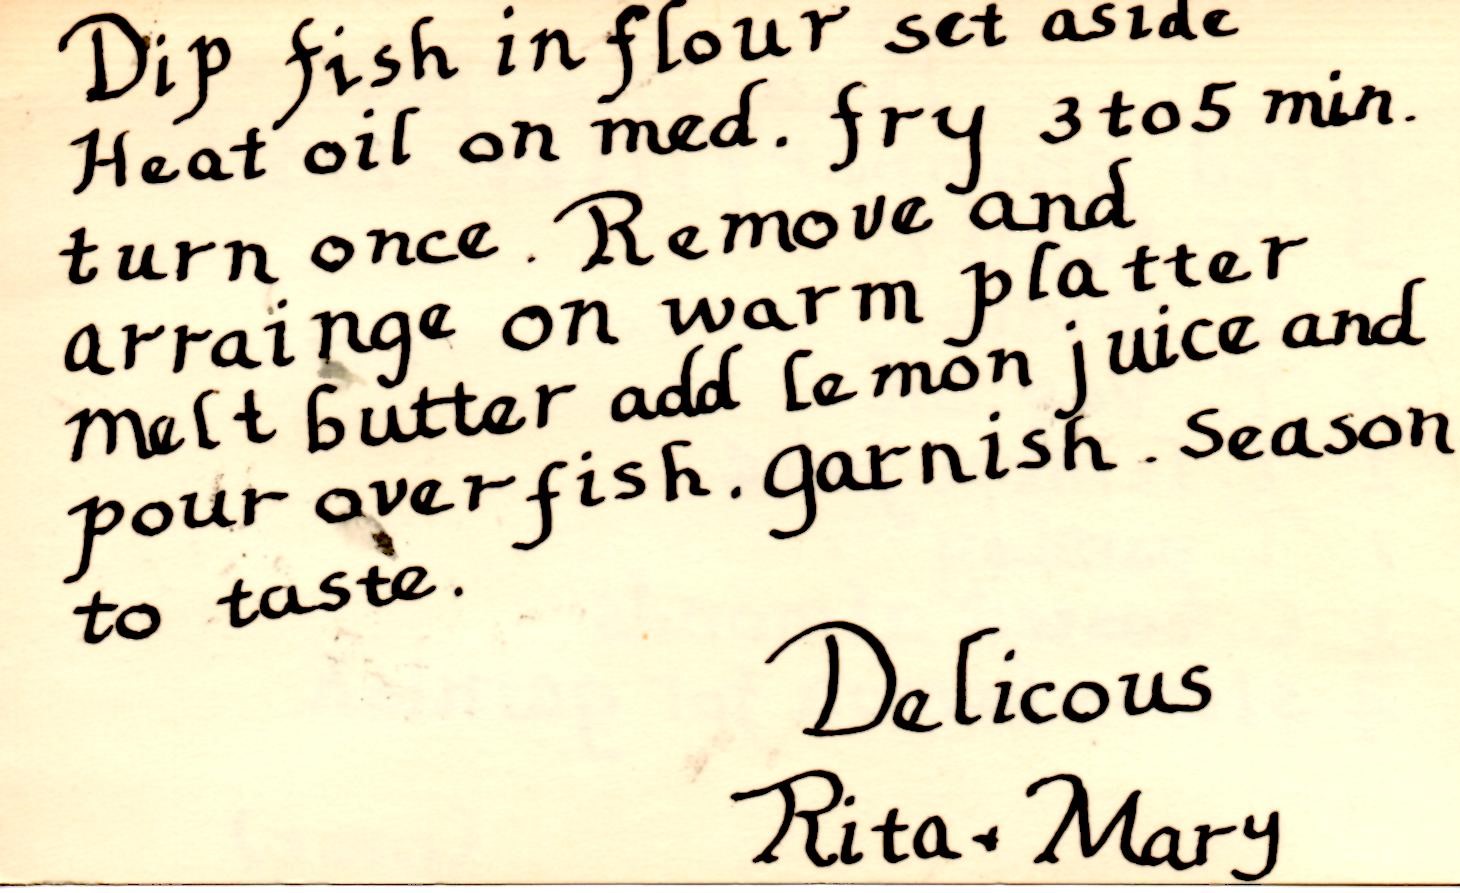 Dip fish in flour set aside
Heat oil on med. fry 3 to 5 min.
turn once. Remove and
arrainge on warm platter
melt butter add lemon juice and
pour over fish. garnish. Season
to taste.
Delicous
Rita + Mary